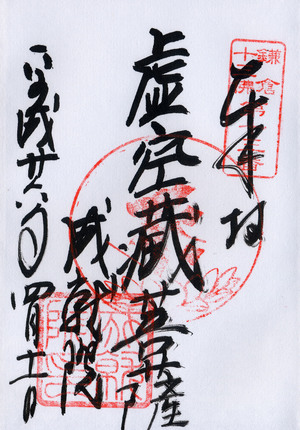 鎌倉
十三佛第十三番
奉拝
虚空蔵菩薩
成就院
平成廿六年四月十一日